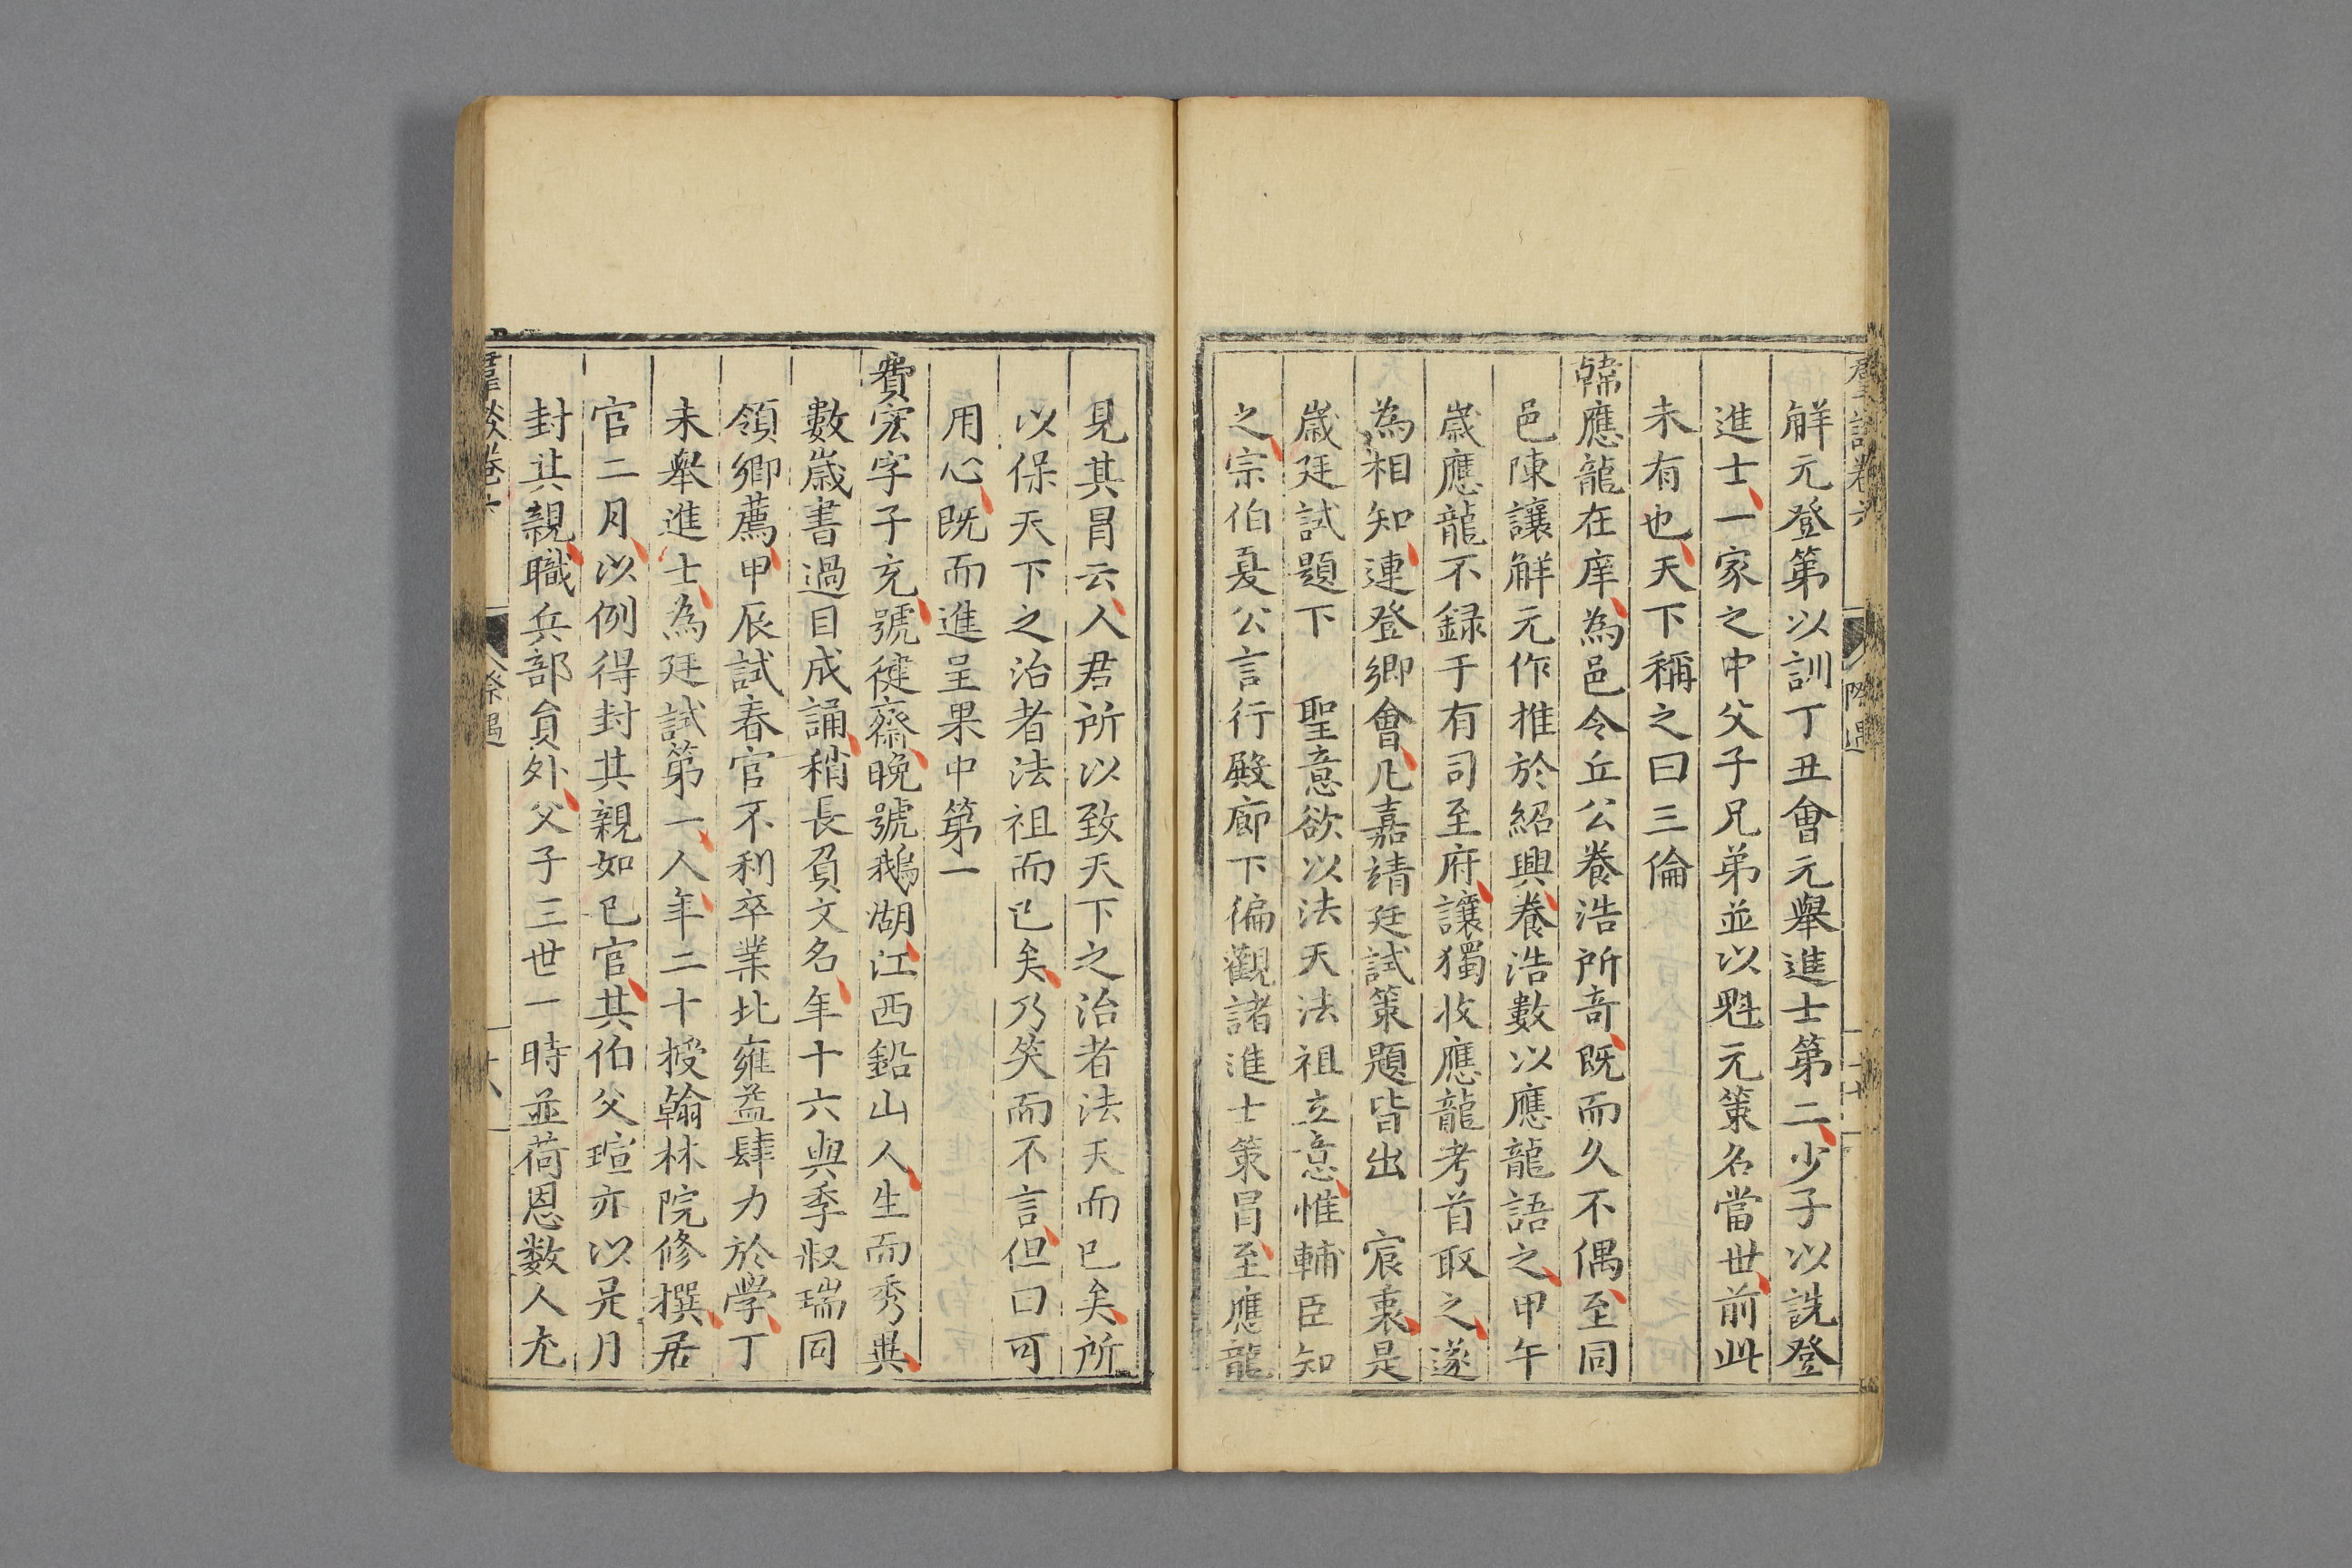 解元登第以訓丁丑會元舉進士第二少子以詵登
進士一家之中父子兄弟並以魁元策名當世前此
未有也天下稱之曰三倫
韓應龍在庠為邑令丘公養浩所竒既而久不偶至同
邑陳讓解元作推於紹興養浩數以應龍語之甲午
歳應龍不録于有司至府讓獨收應龍考首取之遂
為相知連登鄉會凡嘉靖廷試策題皆出 宸衷是
歳廷試題下 聖意欲以法天法祖立意惟輔臣知
之宗伯夏公言行殿廊下徧觀諸進士策冐至應龍
見其冐云人君所以致天下之治者法天而已矣所
以保天下之治者法祖而已矣乃笑而不言但曰可
用心既而進呈果中第一
費宏字子充號健齋晚號鵝湖江西鉛山人生而秀異
數歳書過目成誦稍長負文名年十六與季叔瑞同
領鄉薦甲辰試春官不利卒業北雍益肆力於學丁
未舉進士為廷試第一人年二十授翰林院修撰居
官二月以例得封其親如已官其伯父瑄亦以是月
封其親職兵部員外父子三世一時並荷恩数人尤